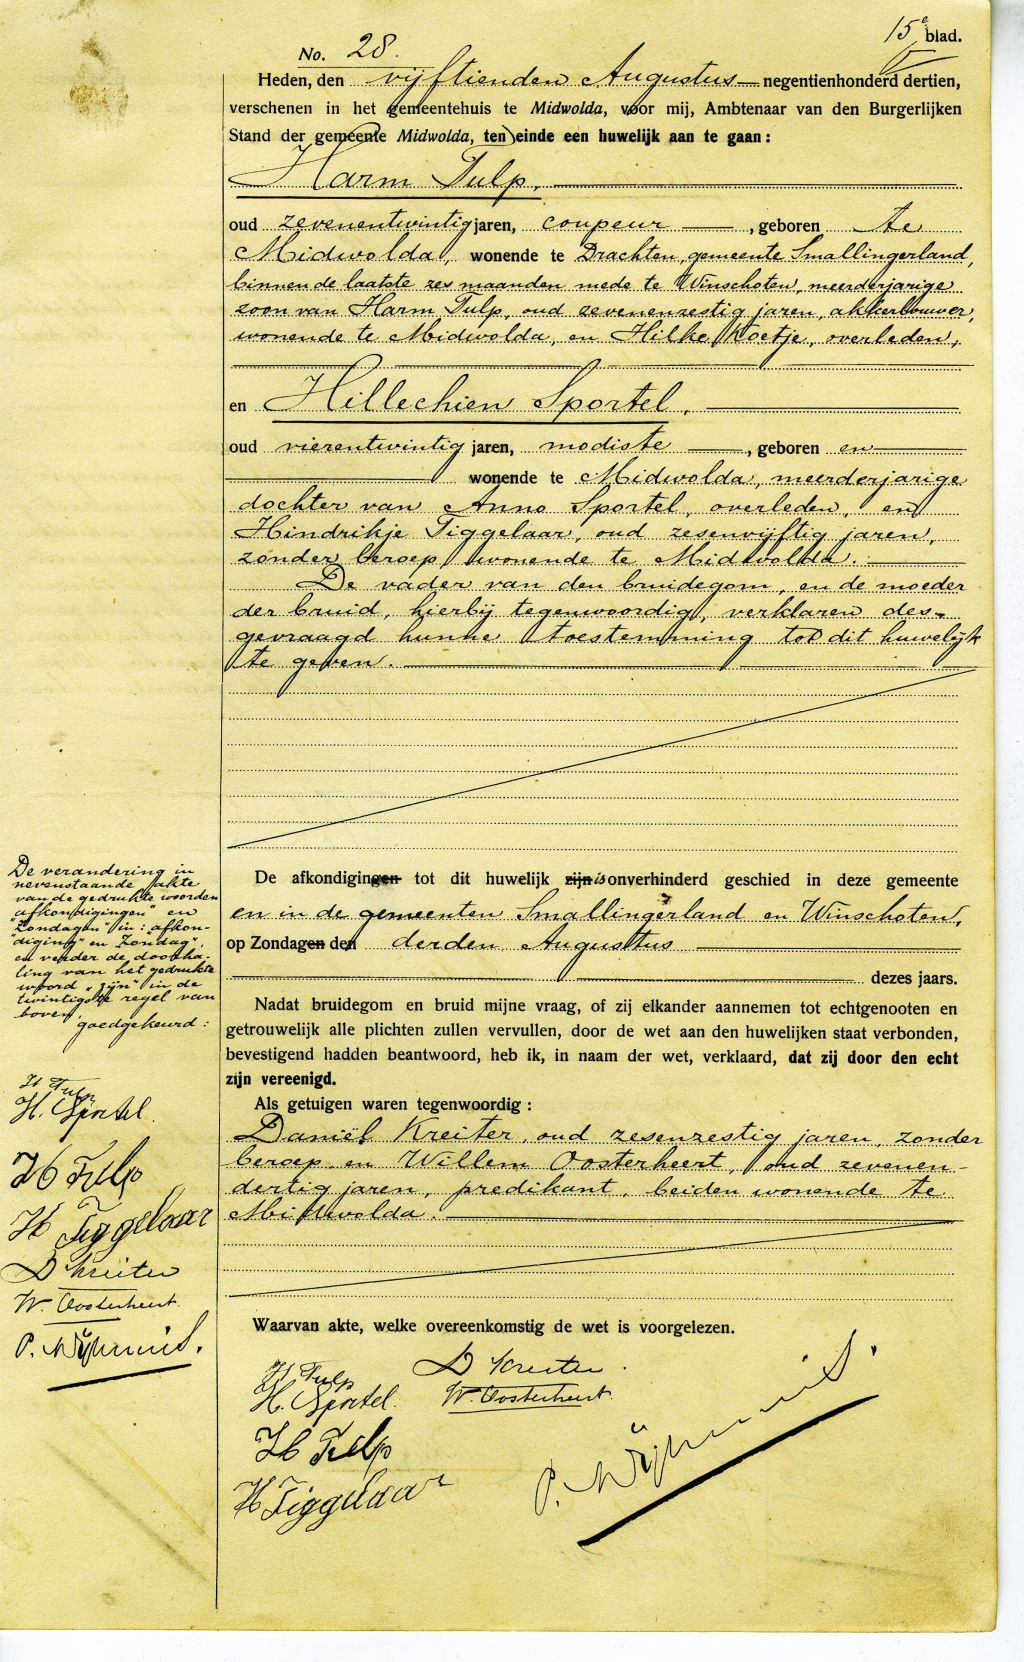 15e blad.
No. 28.
Heden, den vijftienden Augustus — negentienhonderd dertien,
verschenen in het gemeentehuis te Midwolda, voor mij, Ambtenaar van den Burgerlijken
Stand der gemeente Midwolda, ten einde een huwelijk aan te gaan:
Harm Tulp,
oud zevenentwintig jaren, coupeur —, geboren te
Midwolda, wonende te Drachten, gemeente Smallingerland,
binnen de laatste zes maanden mede te Winschoten, meerderjarige
zoon van Harm Tulp, oud zevenenzestig jaren, akkerbouwer,
wonende te Midwolda, en Hilke Koetje, overleden,
en Hillechien Sportel,
oud vierentwintig jaren, modiste —, geboren en
wonende te Midwolda, meerderjarige
dochter van Anno Sportel, overleden, en
Hindrikje Tiggelaar, oud zesenvijftig jaren,
zonder beroep, wonende te Midwolda.
De vader van den bruidegom, en de moeder
der bruid, hierbij tegenwoordig, verklaren des-
gevraagd hunne toestemming tot dit huwelijk
te geven.
De afkondigingen tot dit huwelijk zijn is onverhinderd geschied in deze gemeente
en in de gemeenten Smallingerland en Winschoten,
op Zondagen den derden Augustus
dezes jaars.
Nadat bruidegom en bruid mijne vraag, of zij elkander aannemen tot echtgenooten en
getrouwelijk alle plichten zullen vervullen, door de wet aan den huwelijken staat verbonden,
bevestigend hadden beantwoord, heb ik, in naam der wet, verklaard, dat zij door den echt
zijn vereenigd.
Als getuigen waren tegenwoordig:
Daniël Kreiter, oud zesenzestig jaren, zonder
beroep en Willem Oosterheert, oud zevenen-
dertig jaren, predikant, beiden wonende te
Midwolda.
Waarvan akte, welke overeenkomstig de wet is voorgelezen.
H Tulp
H. Sportel.
H Tulp
H Tiggelaar
D Kreiter.
W. Oosterheert.
De verandering in
nevenstaande akte
van de gedrukte woorden
"afkondigingen" en
"Zondagen" in: "afkon-
diging" en "Zondag",
en verder de doorha-
ling van het gedrukte
woord "zijn" in de
twintigste regel van
boven, goedgekeurd:
H Tulp
H. Sportel.
H Tulp
H Tiggelaar
D Kreiter
W. Oosterheert.